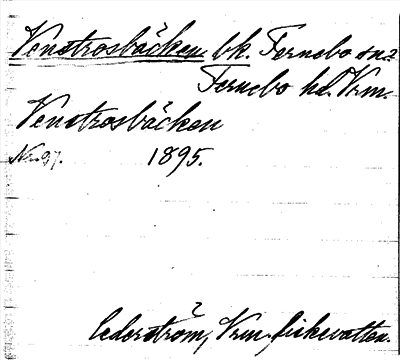 Venstrosbäcken bk. Fernebo sn?
Fernebo hd. Vrm.
Venstrosbäcken
1895.
?
Cederström, Vrm. fiskevatten.